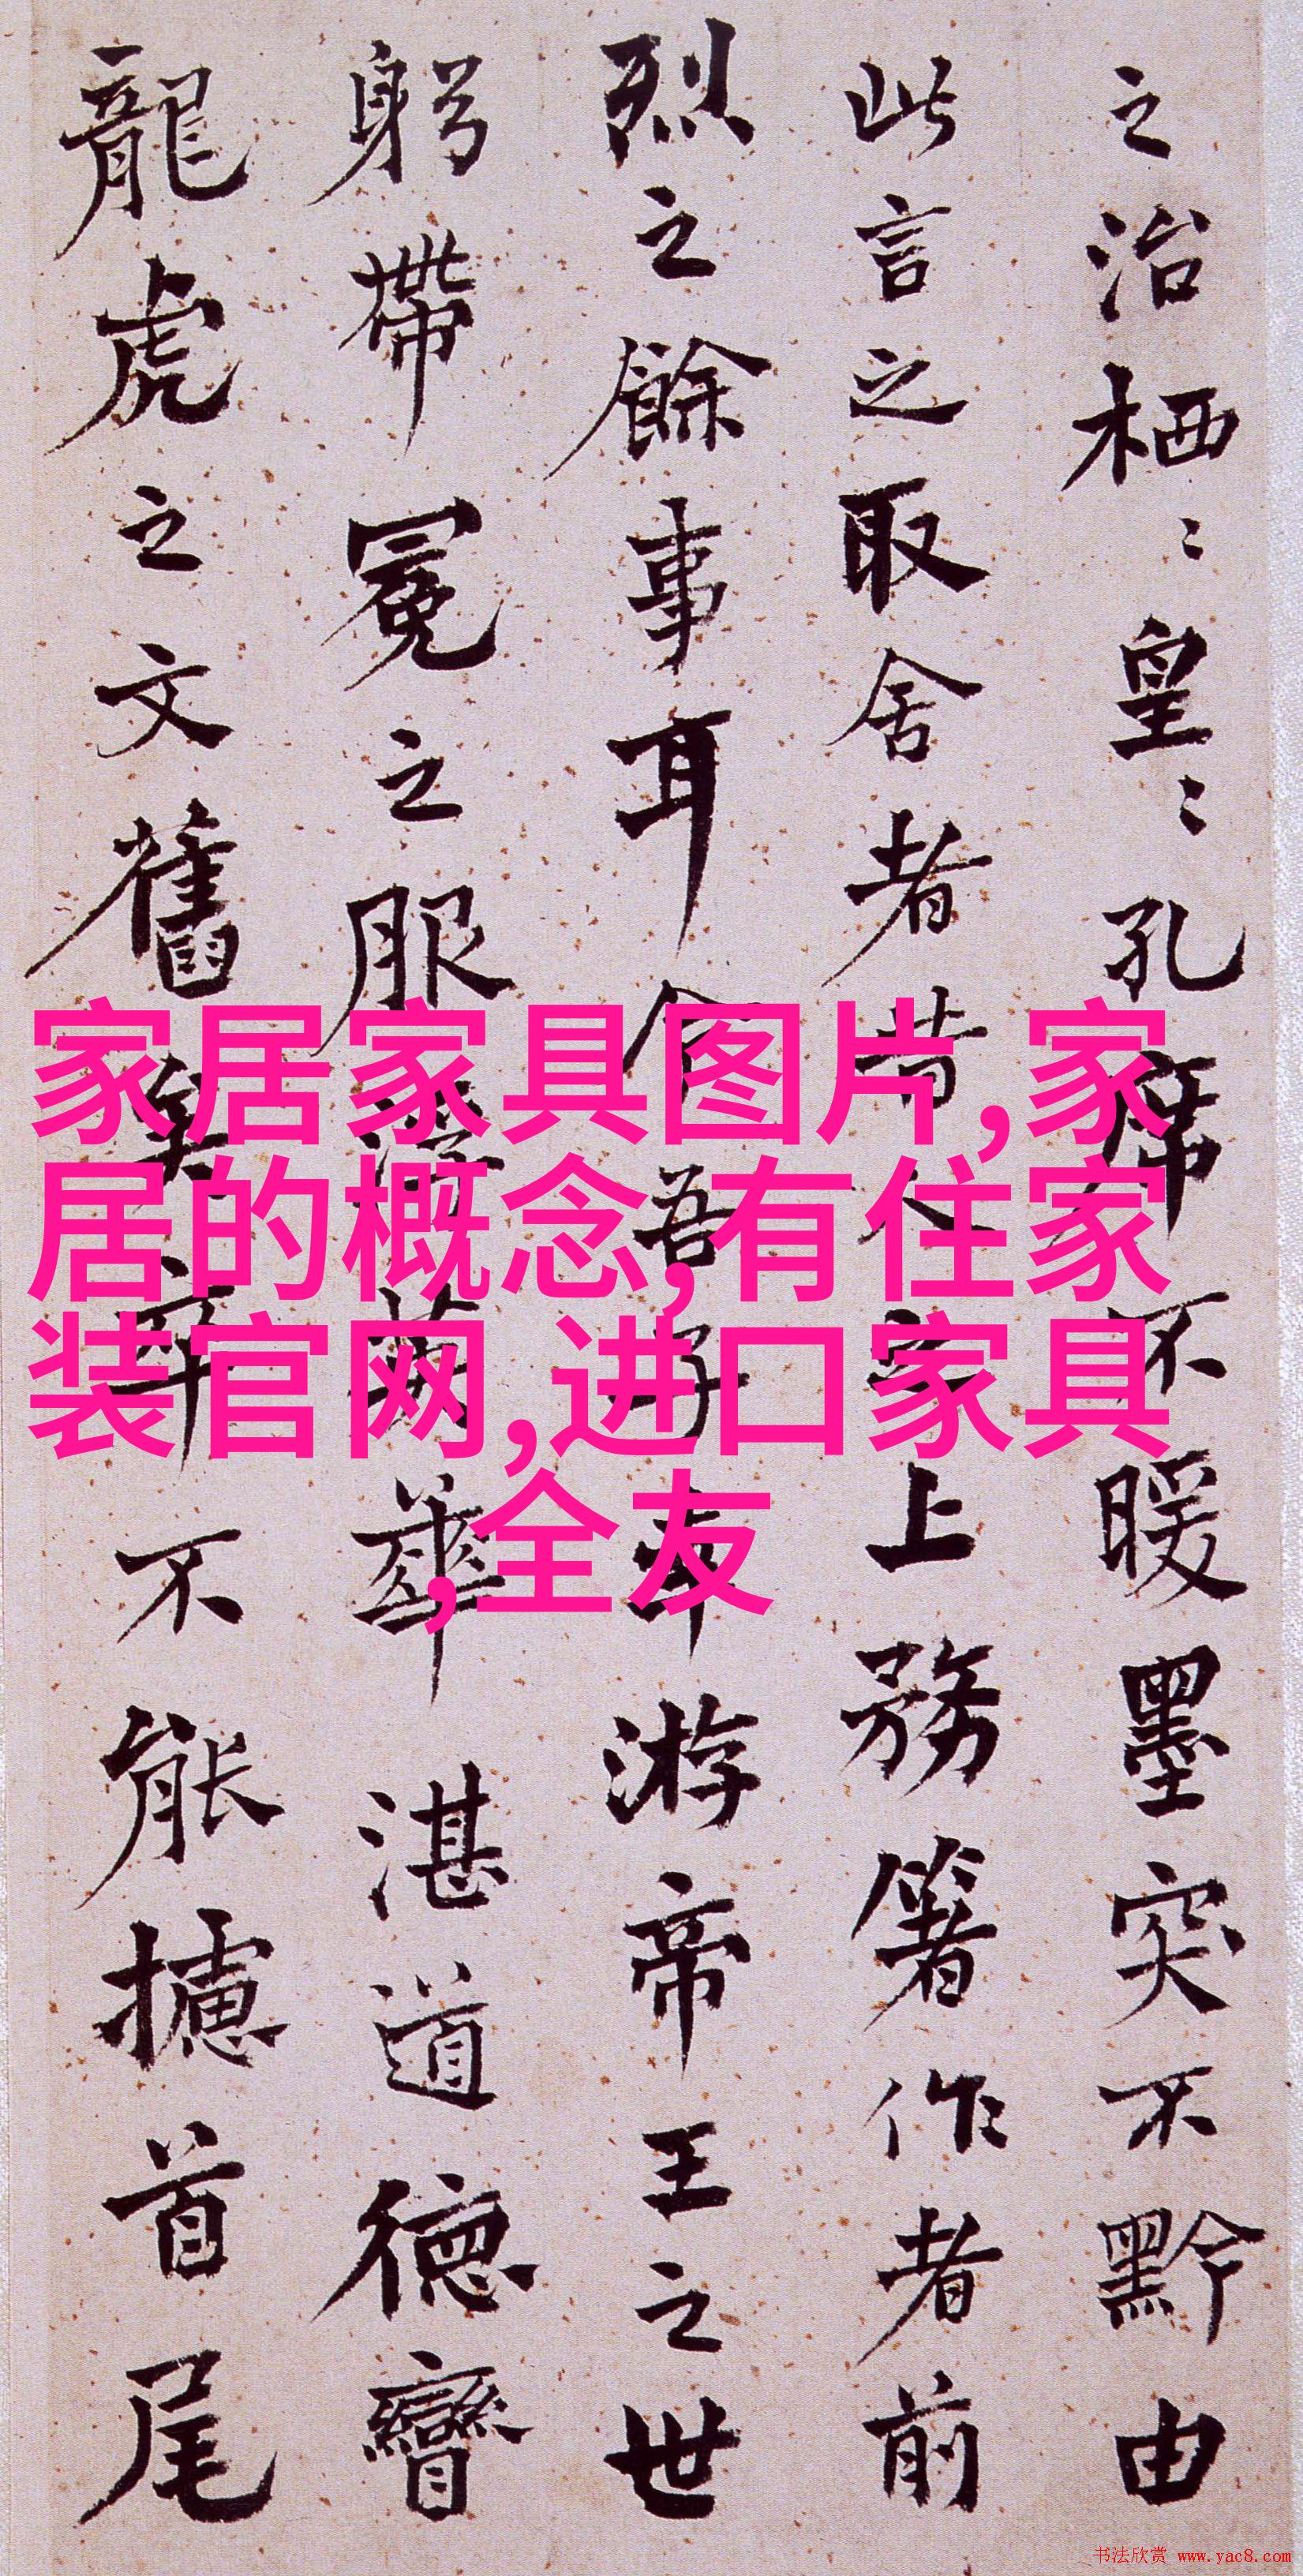 之治栖〻皇〻孔席不暖墨突不黔由
此言之取舍者昔人之上務箸作者前
烈之餘事耳今吾子幸游帝王之世
躬帶冕之服浮英華湛道德矕
龍虎之文舊矣卒不能攄首尾
家居家具图片,家
居的概念,有住家
装官网,进口家具
,全友
书法欣赏 www.yac8.com